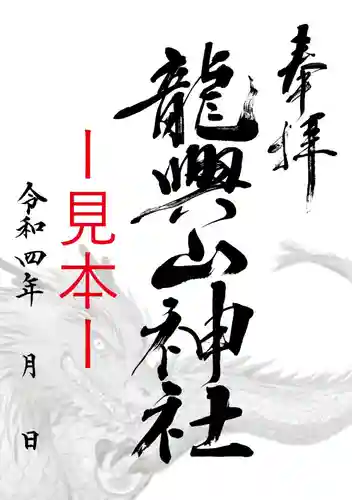 奉拝
龍興山神社
ー見本ー
令和四年　月　日